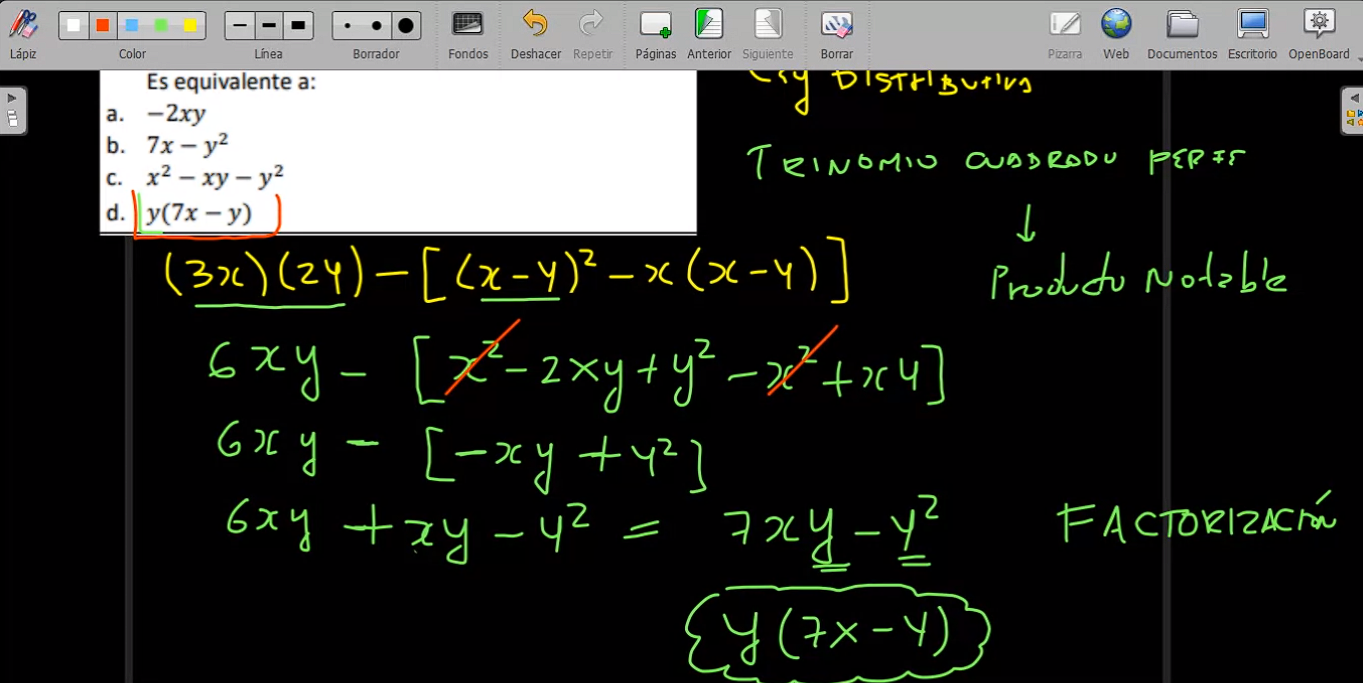 Lápiz Color Línea Borrador Fondos Deshacer Repetir Páginas Anterior Siguiente Borrar Pizarra Web Documentos Escritorio OpenBoard
Es equivalente a:
a. −2xy
b. 7x − y²
c. x² − xy − y²
d. y(7x − y)
Ley DISTRIBUTIVA
TRINOMIO CUADRADO PERFE
↓
Producto Notable
(3x)(2y) − [(x−y)² − x(x−y)]
6xy − [x² − 2xy + y² − x² + xy]
6xy − [−xy + y²]
6xy + xy − y² = 7xy − y²
FACTORIZACIÓN
y(7x − y)